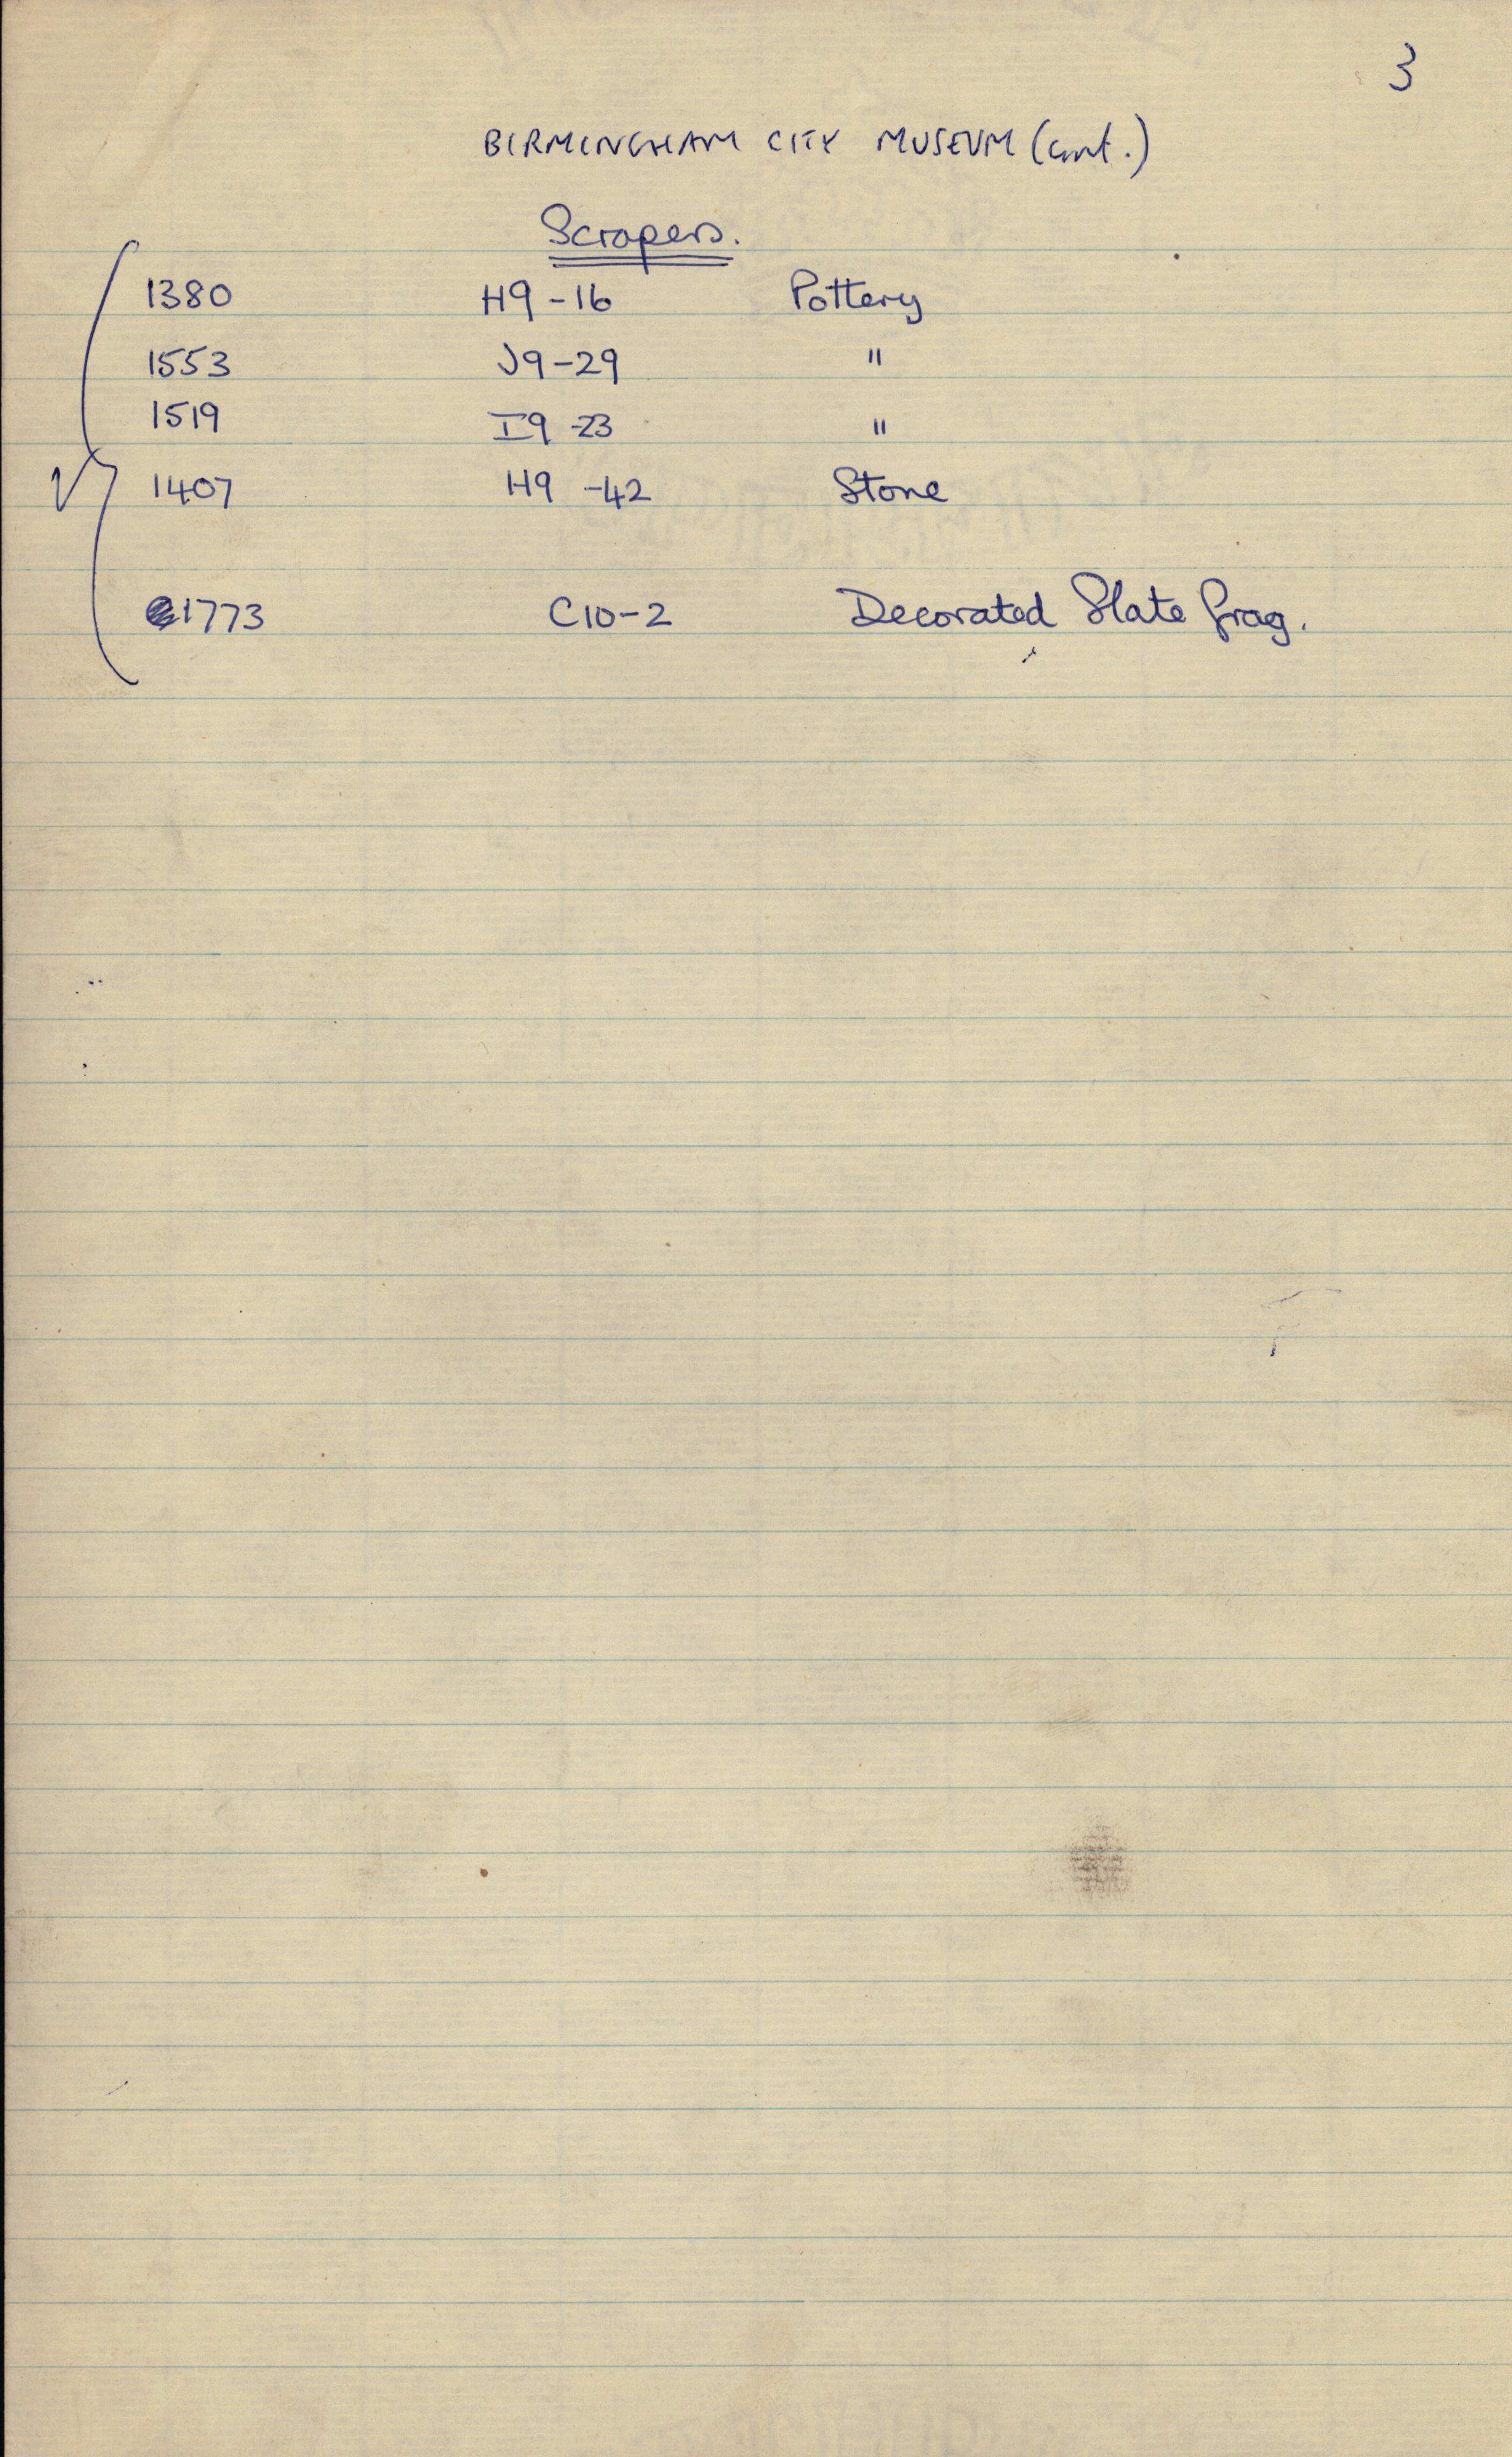 3
BIRMINGHAM CITY MUSEUM (cont.)
Scrapers.
1380 H9-16 Pottery
1553 J9-29 "
1519 I9-23 "
1407 H9-42 Stone
1773 C10-2 Decorated Slate frag.